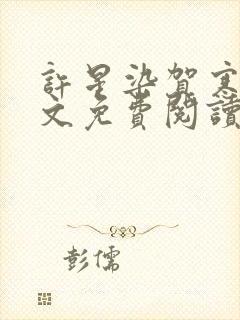 許星染賀寒
文免費閱讀
彭儒